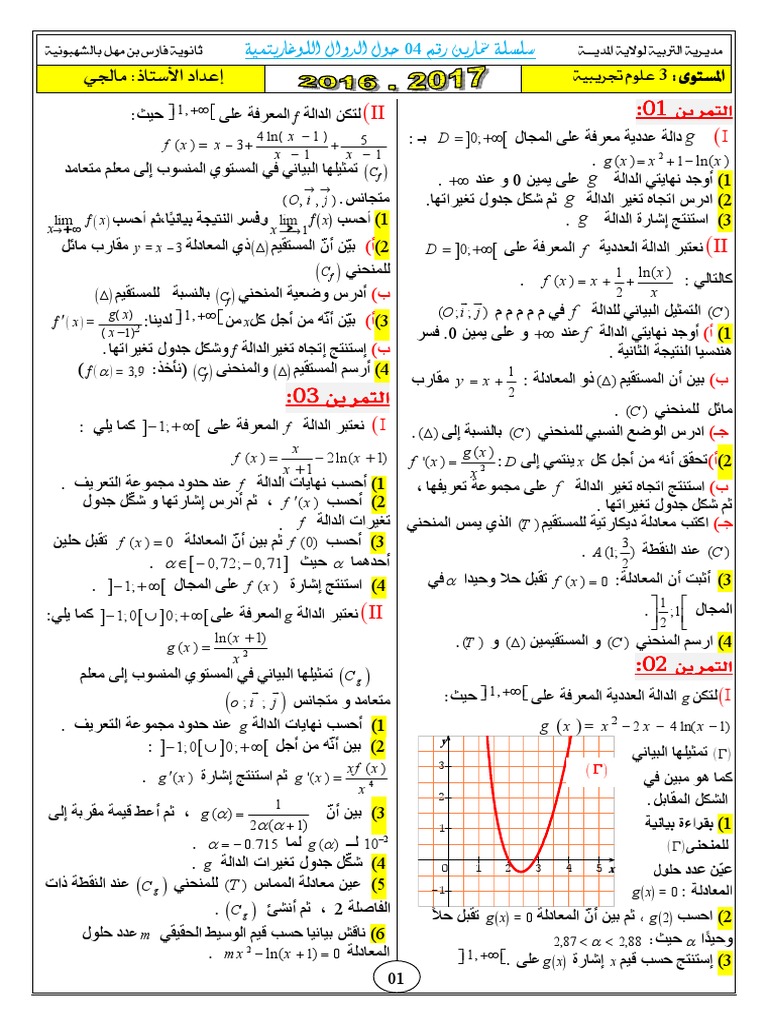 مديرية التربية لولاية المدية
سلسلة تمارين رقم 04 حول الدوال اللوغاريتمية
ثانوية فارس بن مهل بالشهبونية
المستوى: 3 علوم تجريبية
2016 . 2017
إعداد الأستاذ: مالجي
التمرين 01:
I) g دالة عددية معرفة على المجال D = ]0;+∞[ بـ :
g(x) = x² + 1 − ln(x) .
1) أوجد نهايتي الدالة g على يمين 0 و عند +∞ .
2) ادرس اتجاه تغير الدالة g ثم شكل جدول تغيراتها.
3) استنتج إشارة الدالة g .
II) نعتبر الدالة العددية f المعرفة على D = ]0;+∞[
كالتالي : f(x) = x + 1/2 + ln(x)/x .
(C) التمثيل البياني للدالة f في م م م م م (O; i; j)
1) أ) أوجد نهايتي الدالة f عند +∞ و على يمين 0. فسر
هندسيا النتيجة الثانية .
ب) بين أن المستقيم (Δ) ذو المعادلة : y = x + 1/2 مقارب
مائل للمنحني (C) .
جـ) ادرس الوضع النسبي للمنحني (C) بالنسبة إلى (Δ).
2) أ) تحقق أنه من أجل كل x ينتمي إلى D : f '(x) = g(x)/x²
ب) استنتج اتجاه تغير الدالة f على مجموعة تعريفها ،
ثم شكل جدول تغيراتها.
جـ) اكتب معادلة ديكارتية للمستقيم (T) الذي يمس المنحني
(C) عند النقطة A(1; 3/2) .
3) أثبت أن المعادلة: f(x) = 0 تقبل حلا وحيدا α في
المجال ]1/2;1[ .
4) ارسم المنحني (C) و المستقيمين (Δ) و (T).
التمرين 02:
I) لتكن g الدالة العددية المعرفة على ]1,+∞[ حيث:
g(x) = x² − 2x − 4ln(x−1)
(Γ) تمثيلها البياني
كما هو مبين في
الشكل المقابل.
1) بقراءة بيانية
للمنحنى (Γ)
عيّن عدد حلول
المعادلة : g(x) = 0
y
3
2
1
0 1 2 3 4 5 x
−1
(Γ)
2) احسب g(2) ، ثم بين أنّ المعادلة g(x) = 0 تقبل حلاً
وحيدًا α حيث: 2,87 < α < 2,88
3) إستنتج حسب قيم x إشارة g(x) على ]1,+∞[ .
II) لتكن الدالة f المعرفة على ]1,+∞[ حيث:
f(x) = x − 3 + 4ln(x−1)/(x−1) + 5/(x−1)
(Cf) تمثيلها البياني في المستوي المنسوب إلى معلم متعامد
متجانس. (O, i, j)
1) أحسب lim f(x) x→1 وفسر النتيجة بيانيًا،ثم أحسب lim f(x) x→+∞
2) أ) بيّن أنّ المستقيم (Δ) ذي المعادلة y = x − 3 مقارب مائل
للمنحني (Cf)
ب) أدرس وضعية المنحني (Cf) بالنسبة للمستقيم (Δ)
3) أ) بيّن أنّه من أجل كل x من ]1,+∞[ لدينا: f'(x) = g(x)/(x−1)²
ب) إستنتج إتجاه تغير الدالة f وشكل جدول تغيراتها.
4) أرسم المستقيم (Δ) والمنحنى (Cf) (نأخذ: f(α) = 3,9)
التمرين 03:
I) نعتبر الدالة f المعرفة على ]−1;+∞[ كما يلي :
f(x) = x/(x+1) − 2ln(x+1)
1) أحسب نهايات الدالة f عند حدود مجموعة التعريف .
2) أحسب f '(x) ، ثم أدرس إشارتها و شكّل جدول
تغيرات الدالة f .
3) أحسب f(0) ثم بين أنّ المعادلة f(x) = 0 تقبل حلين
أحدهما α حيث α∈[−0,72;−0,71] .
4) استنتج إشارة f(x) على المجال ]−1;+∞[ .
II) نعتبر الدالة g المعرفة على ]−1;0[∪]0;+∞[ كما يلي:
g(x) = ln(x+1)/x²
(Cg) تمثيلها البياني في المستوي المنسوب إلى معلم
متعامد و متجانس (o; i; j)
1) أحسب نهايات الدالة g عند حدود مجموعة التعريف .
2) بين أنّه من أجل ]−1;0[∪]0;+∞[ :
g'(x) = xf(x)/x⁴ ثم استنتج إشارة g'(x) .
3) بين أنّ g(α) = 1/(2α(α+1)) ، ثم أعط قيمة مقربة إلى
10⁻² لـ g(α) لما α = −0.715 .
4) شكّل جدول تغيرات الدالة g .
5) عين معادلة المماس (T) للمنحني (Cg) عند النقطة ذات
الفاصلة 2 ، ثم أنشئ (Cg) .
6) ناقش بيانيا حسب قيم الوسيط الحقيقي m عدد حلول
المعادلة mx² − ln(x+1) = 0 .
01